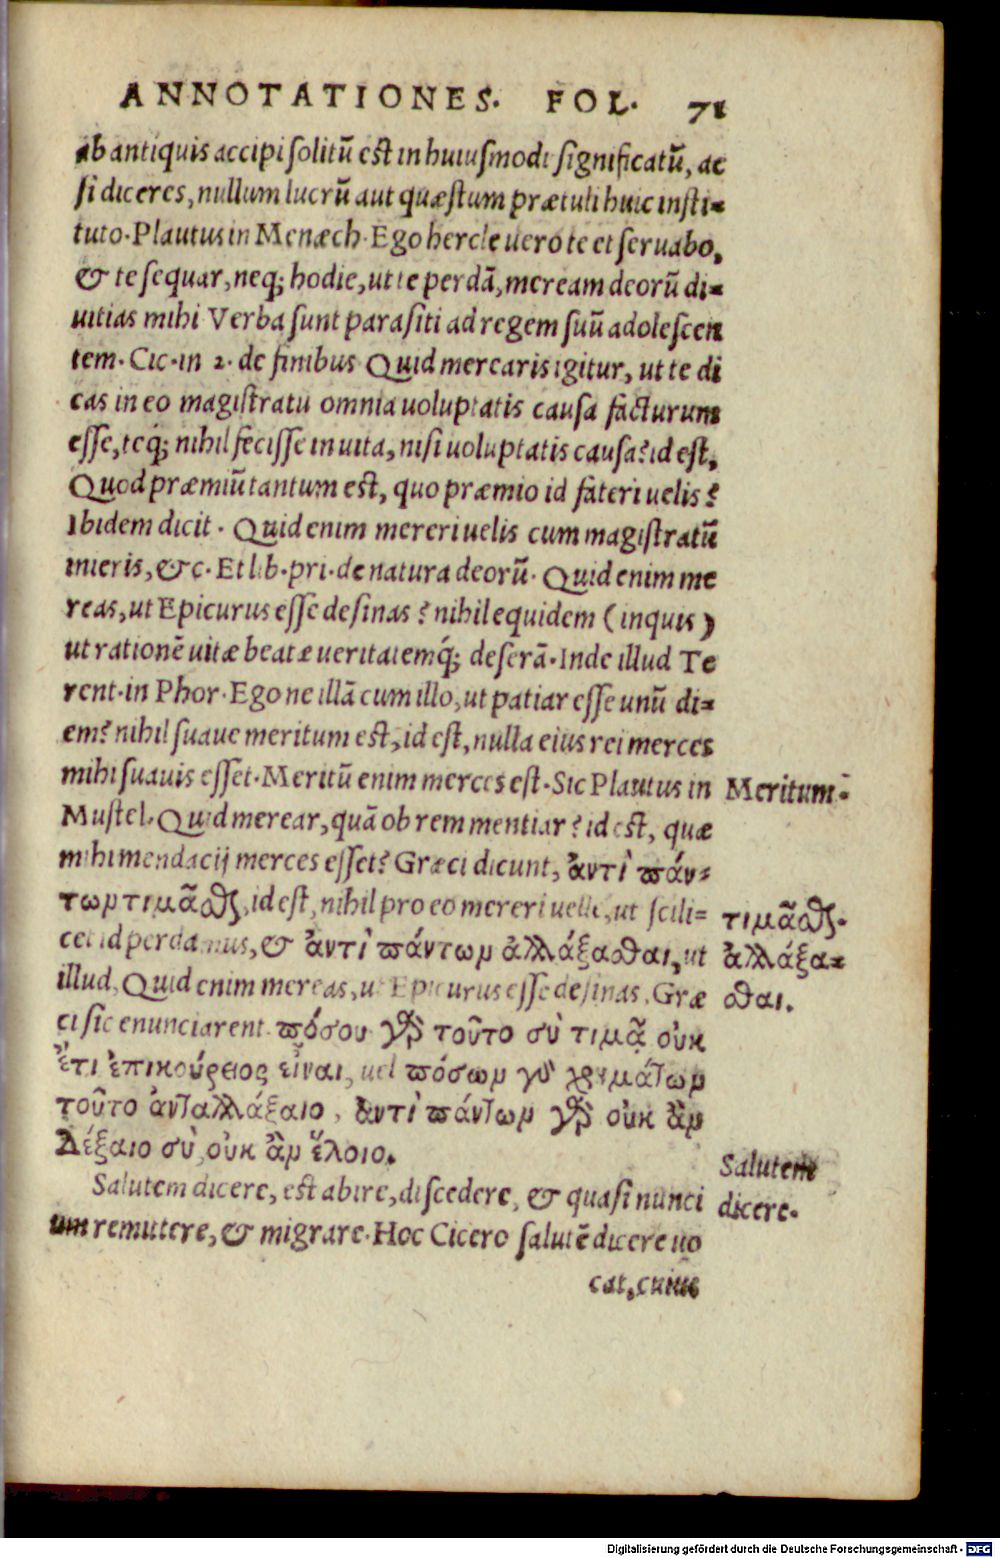 ANNOTATIONES. FOL. 71
ab antiquis accipi solitū est in huiusmodi significatū, ac
si diceres, nullum lucrū aut quæstum prætuli huic insti=
tuto. Plautus in Menæch. Ego hercle uero te et seruabo,
& te sequar, neq; hodie, ut te perdā, meream deorū di=
uitias mihi Verba sunt parasiti ad regem suū adolescen
tem. Cic. in 2. de finibus Quid mercaris igitur, ut te di
cas in eo magistratu omnia uoluptatis causa facturum
esse, teq; nihil fecisse in uita, nisi uoluptatis causa? id est,
Quod præmiū tantum est, quo præmio id fateri uelis?
Ibidem dicit. Quid enim mereri uelis cum magistratū
inieris, &c. Et lib. pri. de natura deorū. Quid enim me
reas, ut Epicurus esse desinas? nihil equidem (inquis)
ut rationē uitæ beatæ ueritatemq́; deserā. Inde illud Te
rent. in Phor. Ego ne illā cum illo, ut patiar esse unū di=
em? nihil suaue meritum est, id est, nulla eius rei merces
mihi suauis esset. Meritū enim merces est. Sic Plautus in
Mustel. Quid merear, quā ob rem mentiar? id est, quæ
mihi mendacij merces esset? Græci dicunt, ἀντὶ πάν=
των τιμᾶσθαι, id est, nihil pro eo mereri uelle, ut scili=
cet id perdamus, & ἀντὶ πάντων ἀλλάξασθαι, ut
illud, Quid enim mereas, ut Epicurus esse desinas. Græ
ci sic enunciarent. πόσου γὰρ τοῦτο σὺ τιμᾷ οὐκ
ἔτι ἐπικούρειος εἶναι, uel πόσων γὰρ χρημάτων
τοῦτο ἀνταλλάξαιο, ἀντὶ πάντων γὰρ οὐκ ἂν
δέξαιο σὺ, οὐκ ἂν ἕλοιο.
Salutem dicere, est abire, discedere, & quasi nunci
um remittere, & migrare. Hoc Cicero salutē dicere uo
cat, cuius
Meritum.
τιμᾶσθαι.
ἀλλάξα=
σθαι.
Salutem
dicere.
Digitalisierung gefördert durch die Deutsche Forschungsgemeinschaft - DFG